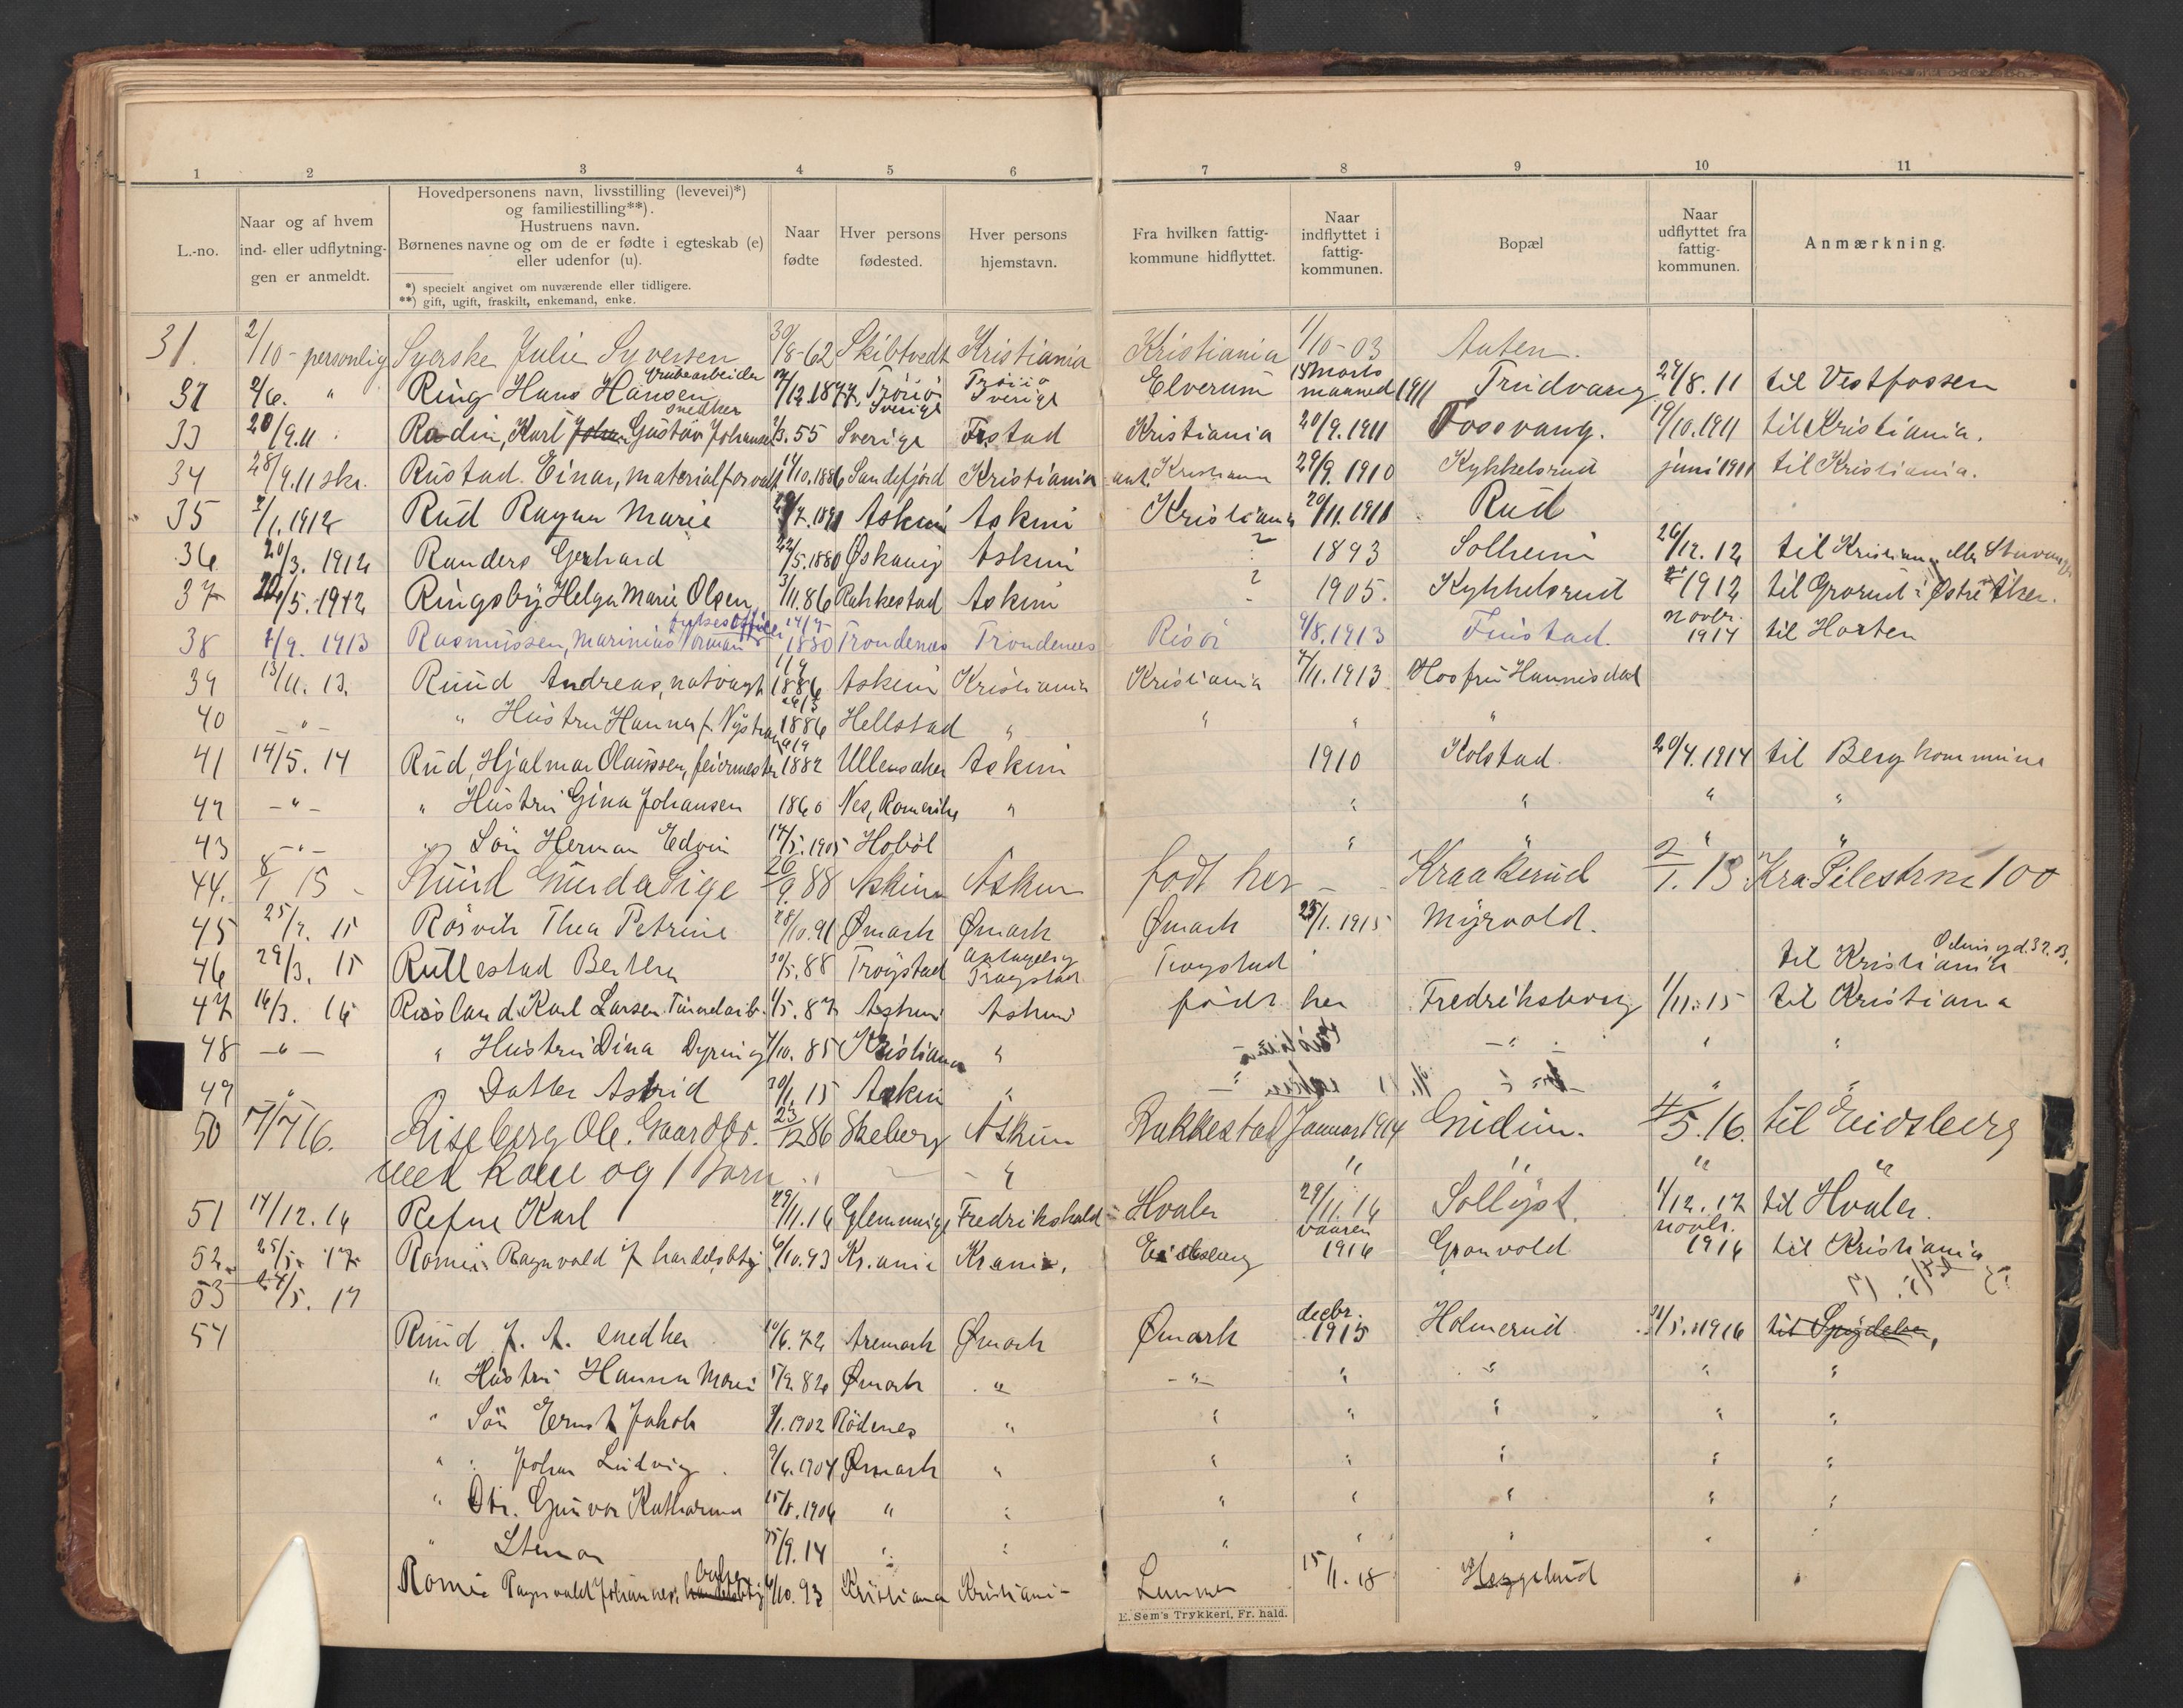 1 2 3 4 5 6 7 8 9 10 11
L.-no.
Naar og af hvem ind- eller udflytningen er anmeldt.
Hovedpersonens navn, livsstilling (levevei)*) og familiestilling**). Hustruens navn. Børnenes navne og om de er fødte i egteskab (e) eller udenfor (u).
*) specielt angivet om nuværende eller tidligere.
**) gift, ugift, fraskilt, enkemand, enke.
Naar fødte
Hver persons fødested.
Hver persons hjemstavn.
Fra hvilken fattigkommune hidflyttet.
Naar indflyttet i fattigkommunen.
Bopæl
Naar udflyttet fra fattigkommunen.
Anmærkning.
31. 2/10 - personlig Syerske Julie Syversen 30/8-62 Skibtvedt Kristiania Kristiania 1/10-03 Auten.
31 2/6. " Ring Hans Hansen Grubearbeider /12.1877. Tröiiö Sverige Tröiiö Sverige Elverum Marts maaned 1911 Tridvang 29/8.11 til Vestfossen
33 20/9.11 Radin, Karl Gustav Johansen snedker 1/3.55 Sverige Kristiania 20/9.1911 Fossvang. 19/10.1911 til Kristiania.
34 28/9.11 skr. Rustad. Einar, materialforvalt 11/10.1886 Sandefjord Kristiania ant. Kristiania 29/9.1910 Kykkelsrud juni 1911 til Kristiania.
35 2/1.1912 Rud Ragna Marie Askim Askim Kristiania 20/11.1911 Rud
36 20/3.1912 Randers Gerhard 22/5.1880 Askim ? 1893 Solheim 26/12.12 til Kristiania eller Stavanger
37 20/5.1912 Ringsby Helga Marie Olsen 3/11.86 Rakkestad Askim ? 1905. Kykkelsrud 1912 til Grorud i Østre Aker.
38 1/9.1913 Rasmussen, Marinius Norman 14/7 1880 Trondenes Trondenes Risör 9/8.1913 Finstad. novbr. 1914 til Horten
39 13/11.13. Ruud Andreas, natvagt 11/9 1886 Askim Kristiania Kristiania 7/11.1913 Hos fru Hannisdal
40 - " - " Hustru Hanna f. Nyström 1886 Hellstad " " " "
41 14/5.14 Rud, Hjalmar Olaussen, feiermester 1882 Ullensaker Askim 1910 Kolstad. 20/4.1914 til Berg kommune
42 - " - " Hustru Gina Johansen 1860 Nes, Romerike " " " " "
43 - " - " Sön Herman Edvin 14/5.1905 Hobøl " " " " "
44. 8/1 15 - Ruud Gunda Sige 26/9.88 Askim Askim født her - Kraakerud 2/1.13 Kra. Pilestræ 100
45 25/2.15 Rösvik Thea Petrine 28/10.91 Ømark Ømark Ømark 25/1.1915 Myrvold.
46 29/3.15 Rullestad Berthea 30/5.88 Tröystad antagelig Tröystad Trøgstad " til Kristiania Odins gd. 32. B.
47 16/3.16 Rusland. Karl Larsen. Tömdarb. 1/5.87 Askim Askim født her Fredriksborg 1/11.15 til Kristiania
48 - " - " Hustru Dina Dyring 7/10.85 Kristiania " - " - " "
49 " Datter Astrid 30/1.15 Askim " " " "
50 7/7 16. Riseberg Ole. Gaardbr. 23/12 86 Skeberg Askim Rakkestad Januar 1914 Gudim. 4/5.16. til Eidsberg
med Kone og 1 Barn " " " " "
51 14/12.16 Refne Karl 29/11.16 Glemminge Fredrikshald Hvaler 29/11.16 Sollyst. 1/12.17 til Hvaler.
52. 25/5.17 Romie. Ragnvald J. handelsbtj. 6/10.93 Kr.ania Krania. Eidsberg vaaren 1916 Granvold novbr. 1916 til Kristiania
53 24/5.17
54 Ruud J. A. snedker 10/6.72 Aremark Ømark Ømark decbr. 1915 Holmerud 31/5.1916 til Spydeberg,
" Hustru Hanna Marie 5/2.82 Ømark " - " - " " " "
" Sön Ernst Jakob 3/1.1902 Rödenes " " " " " "
" " Johan Ludvig 9/4.1904 Ømark " " " " " "
" Dtr. Gunvor Katharina 15/8.1906 " " " " " " "
" Stenar 25/9.14 " " " " " "
Romie Ragnvald Johannes, handelsbtj 6/10.93 Kristiania Kristiania Lunner 15/1.18 Heggelund
E. Sem's Trykkeri, Fr. hald.